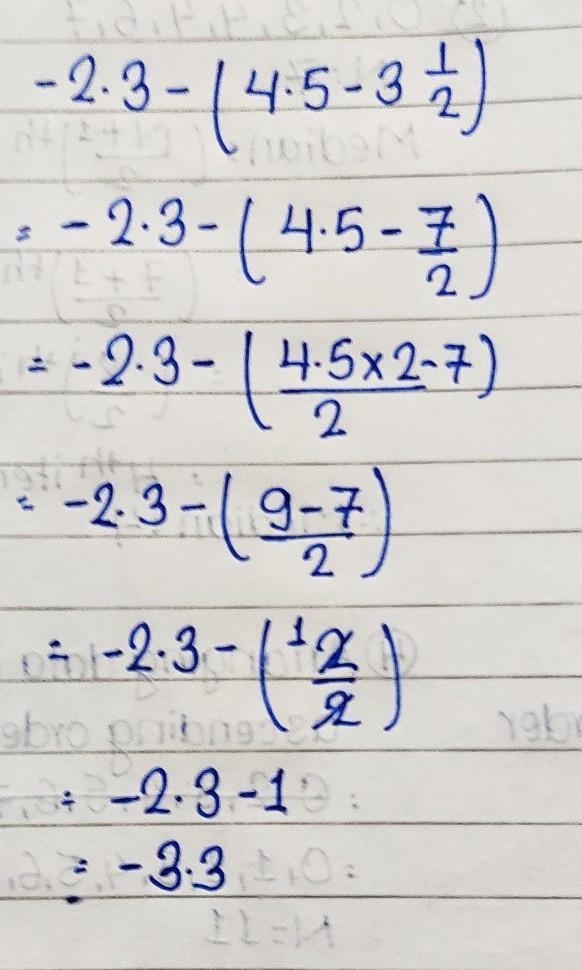 -2.3 - (4.5 - 3 1/2)
= -2.3 - (4.5 - 7/2)
= -2.3 - (4.5×2-7 / 2)
= -2.3 - (9-7 / 2)
= -2.3 - (1 2/2)
= -2.3 - 1
= -3.3